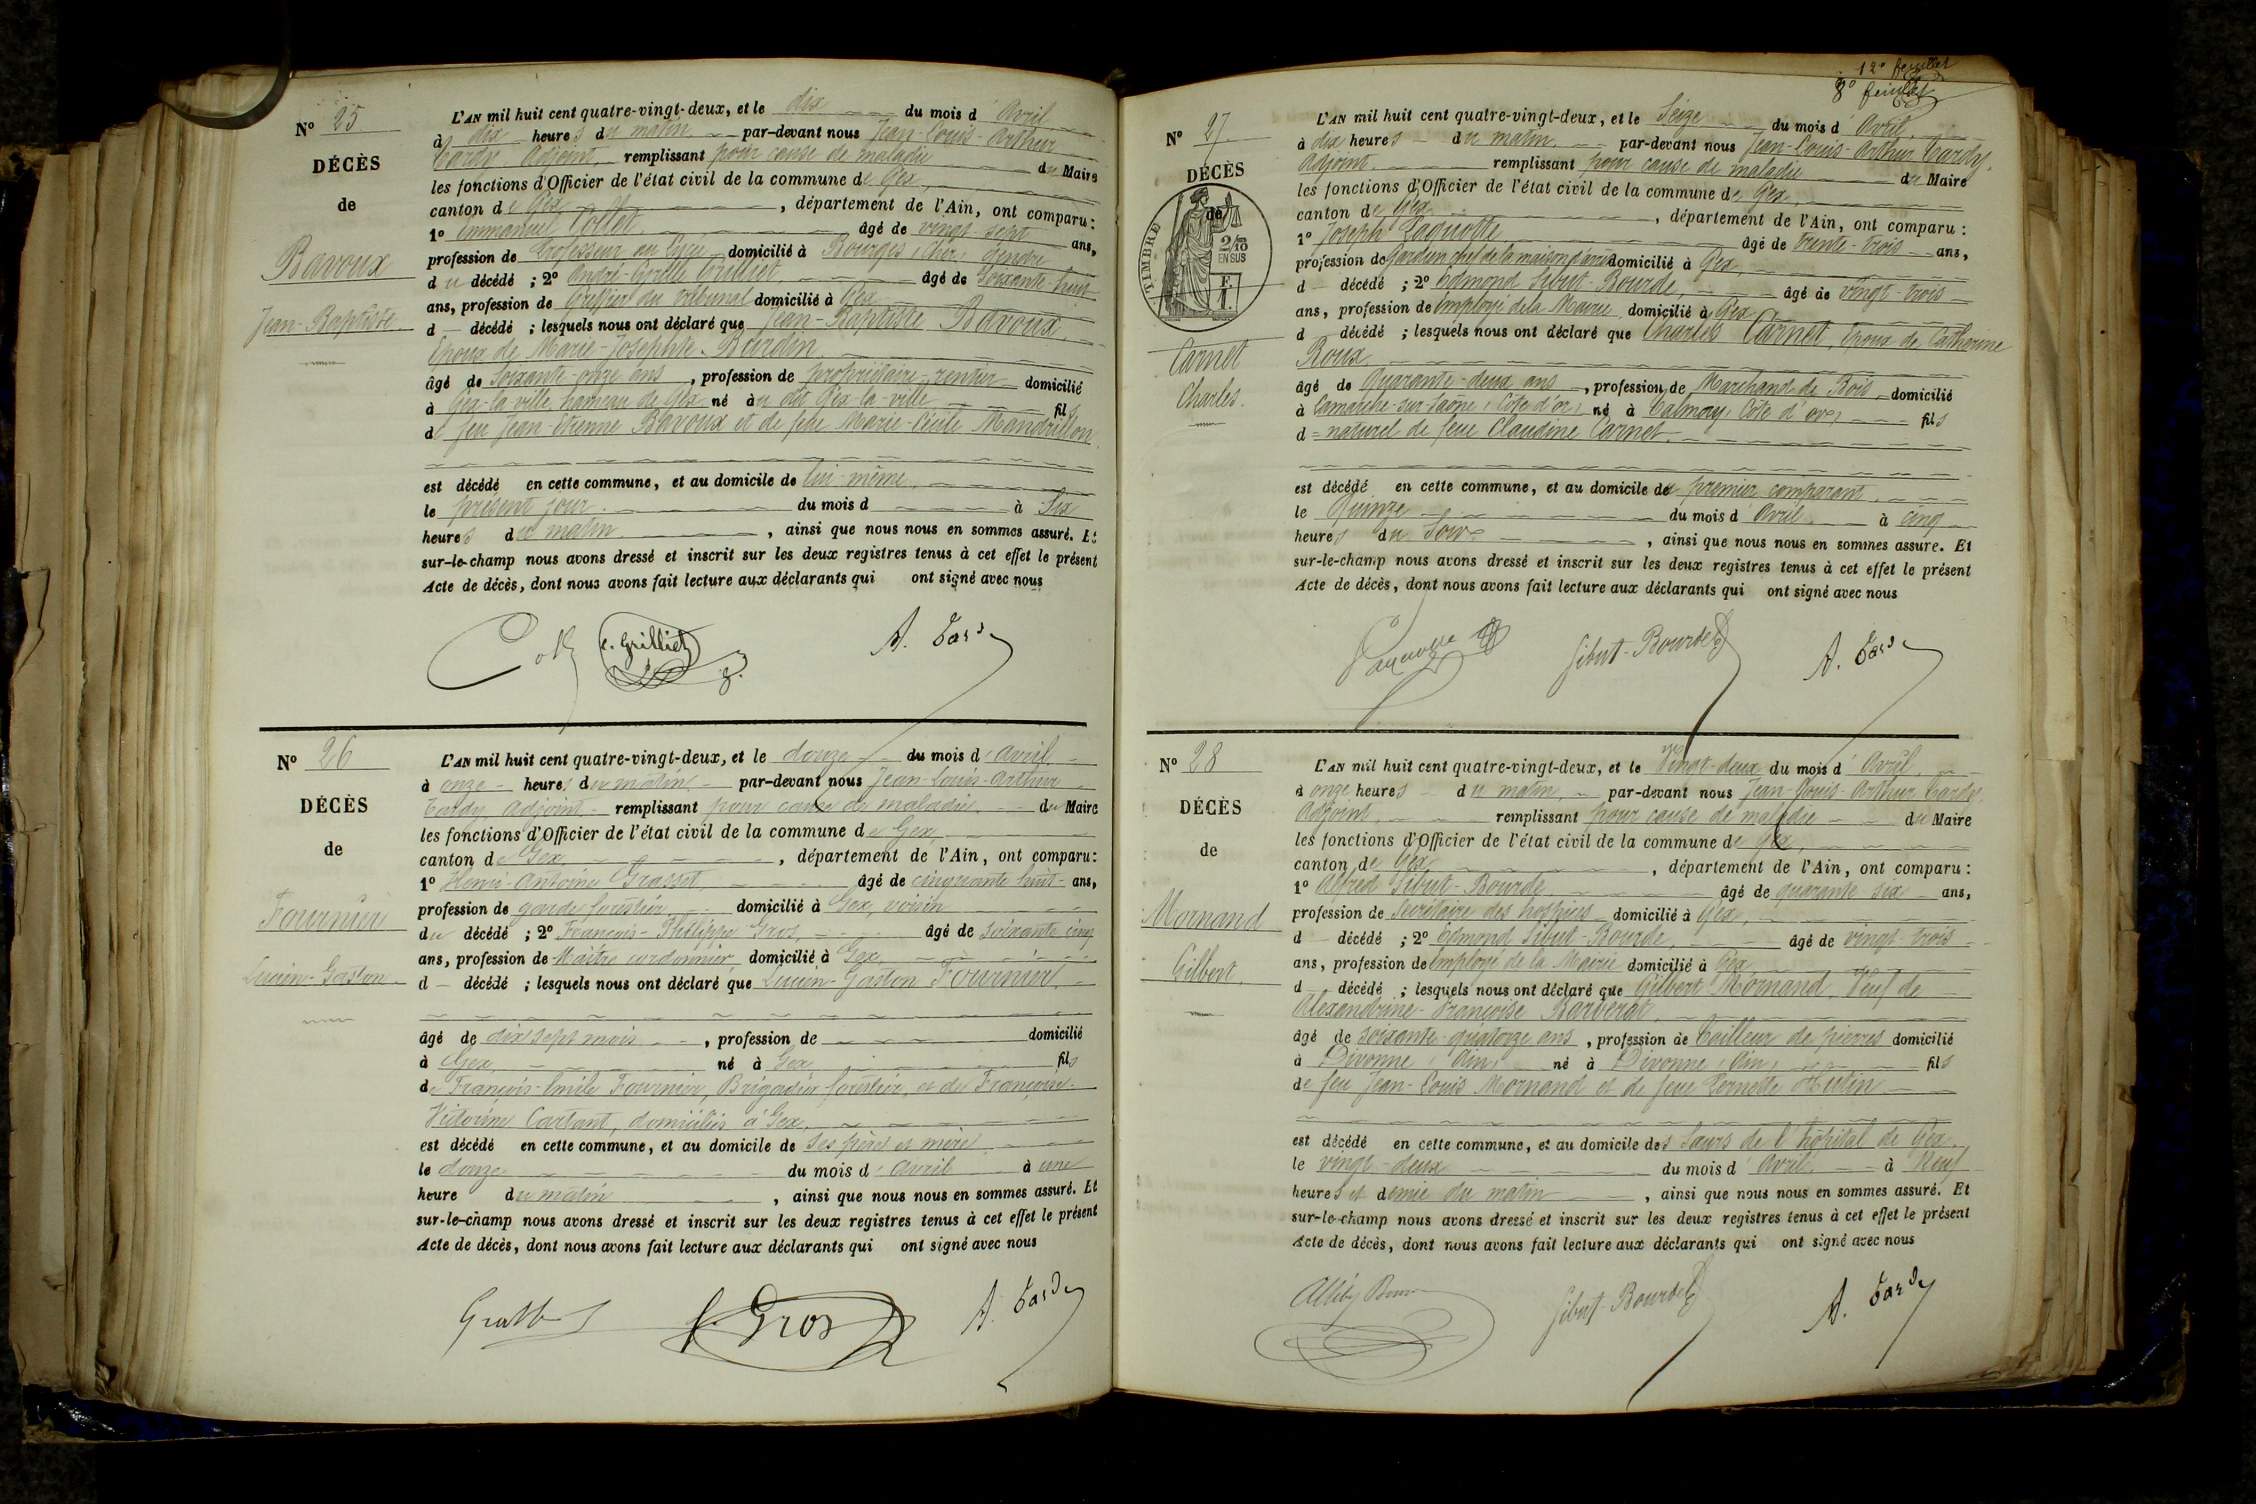 12e feuillet
8e feuillet
No 25
DÉCÈS
de
Bavoux
Jean-Baptiste
L'AN mil huit cent quatre-vingt-deux, et le dix du mois d'Avril
à dix heures du matin par-devant nous Jean-Louis-Arthur
Tardy, Adjoint remplissant pour cause de maladie du Maire
les fonctions d'Officier de l'état civil de la commune de Gex,
canton de Gex, département de l'Ain, ont comparu:
1o Emmanuel Collet âgé de vingt-sept ans,
profession de Professeur au lycée domicilié à Bourges (Cher) Gendre
du décédé ; 2o André-Cyrille Grilliet âgé de soixante-huit
ans, profession de Greffier du tribunal domicilié à Gex
d décédé ; lesquels nous ont déclaré que Jean-Baptiste Bavoux,
Époux de Marie-Josephte Burdin,
âgé de soixante-onze ans, profession de propriétaire-rentier domicilié
à Gex-la-ville, hameau de Gex, né à u dit Gex-la-ville fils
de feu Jean-Etienne Bavoux et de feue Marie-Cécile Mandrillon.
est décédé en cette commune, et au domicile de lui-même
le présent jour du mois d à Six
heures du matin, ainsi que nous nous en sommes assuré. Et
sur-le-champ nous avons dressé et inscrit sur les deux registres tenus à cet effet le présent
Acte de décès, dont nous avons fait lecture aux déclarants qui ont signé avec nous
C. Grilliet A. Tardy
No 26
DÉCÈS
de
Fournier
Lucien-Gaston
L'AN mil huit cent quatre-vingt-deux, et le douze du mois d'Avril
à onze heures du matin par-devant nous Jean-Louis-Arthur
Tardy, Adjoint remplissant pour cause de maladie du Maire
les fonctions d'Officier de l'état civil de la commune de Gex
canton de Gex, département de l'Ain, ont comparu:
1o Henri-Antoine Grasset âgé de cinquante huit ans,
profession de garde forestier domicilié à Gex, voisin
du décédé ; 2o François-Philippe Gros, âgé de soixante cinq
ans, profession de Maître cordonnier domicilié à Gex
d décédé ; lesquels nous ont déclaré que Lucien-Gaston Fournier,
âgé de dix sept mois, profession de domicilié
à Gex, né à Gex fils
de François-Emile Fournier, Brigadier forestier, et de Françoise-
Victorine Cartant, domiciliés à Gex,
est décédé en cette commune, et au domicile de ses père et mère
le douze du mois d'avril à une
heure du matin, ainsi que nous nous en sommes assuré. Et
sur-le-champ nous avons dressé et inscrit sur les deux registres tenus à cet effet le présent
Acte de décès, dont nous avons fait lecture aux déclarants qui ont signé avec nous
Gros A. Tardy
No 27
DÉCÈS
de
TIMBRE
2/10
EN SUS
Carnet
Charles.
L'AN mil huit cent quatre-vingt-deux, et le Seize du mois d'Avril.
à dix heures du matin, par-devant nous Jean-Louis-Arthur Tardy,
Adjoint remplissant pour cause de maladie du Maire
les fonctions d'Officier de l'état civil de la commune de Gex,
canton de Gex, département de l'Ain, ont comparu :
1o Joseph Paquotte âgé de trente-trois ans,
profession de Gardien chef de la maison d'arrêt domicilié à Gex,
d décédé ; 2o Edmond Sibut-Bourde, âgé de vingt-trois
ans, profession de Employé de la Mairie domicilié à Gex
d décédé ; lesquels nous ont déclaré que Charles Carnet, Époux de Catherine
Roux
âgé de quarante-deux ans, profession de Marchand de Bois domicilié
à Lamarche-sur-Saône (Côte d'or) né à Talmay (Côte d'or) fils
d naturel de feue Claudine Carnet.
est décédé en cette commune, et au domicile du premier comparant
le Quinze du mois d'Avril à cinq
heures du Soir, ainsi que nous nous en sommes assuré. Et
sur-le-champ nous avons dressé et inscrit sur les deux registres tenus à cet effet le présent
Acte de décès, dont nous avons fait lecture aux déclarants qui ont signé avec nous
Paquotte Sibut-Bourde A. Tardy
No 28
DÉCÈS
de
Mornand
Gilbert.
L'AN mil huit cent quatre-vingt-deux, et le Vingt-deux du mois d'Avril
à onze heures du matin, par-devant nous Jean-Louis-Arthur Tardy,
Adjoint, remplissant pour cause de maladie du Maire
les fonctions d'Officier de l'état civil de la commune de Gex,
canton de Gex, département de l'Ain, ont comparu :
1o Alfred Sibut-Bourde âgé de quarante six ans,
profession de Secrétaire des hospices domicilié à Gex,
d décédé ; 2o Edmond Sibut-Bourde, âgé de vingt-trois
ans, profession de Employé de la Mairie domicilié à Gex
d décédé ; lesquels nous ont déclaré que Gilbert Mornand, Veuf de
Alexandrine-Françoise Barberat,
âgé de soixante-quatorze ans, profession de Tailleur de pierres domicilié
à Divonne (Ain) né à Divonne (Ain) fils
de feu Jean-Louis Mornand et de feue Pernette Hutin
est décédé en cette commune, et au domicile des Sœurs de l'hôpital de Gex
le vingt-deux du mois d'Avril à Neuf
heures et demie du matin, ainsi que nous nous en sommes assuré. Et
sur-le-champ nous avons dressé et inscrit sur les deux registres tenus à cet effet le présent
Acte de décès, dont nous avons fait lecture aux déclarants qui ont signé avec nous
Sibut-Bourde A. Tardy